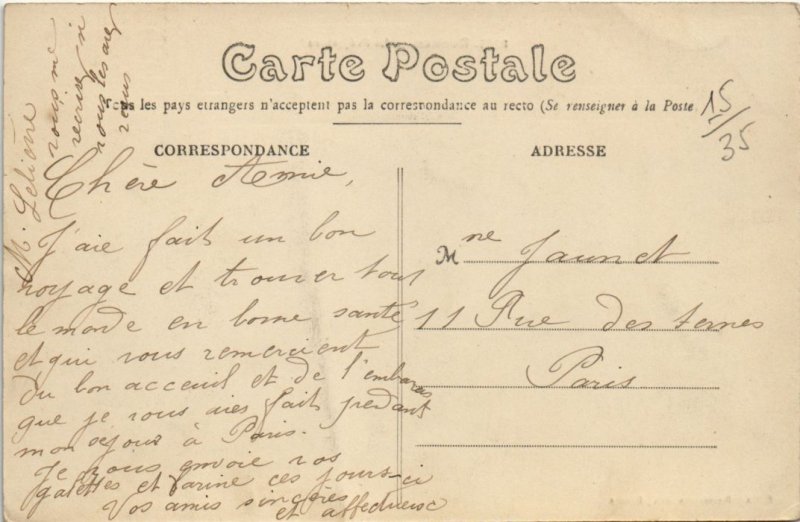 Carte Postale
Tous les pays etrangers n'acceptent pas la correspondance au recto (Se renseigner à la Poste
15/35
CORRESPONDANCE
ADRESSE
Chère Amie,
J'aie fait un bon
voyage et trouver tout
le monde en bonne santé
et qui vous remercient
du bon acceuil et de l'embaras
que je vous aies fait pendant
mon séjour à Paris.
Je vous envoie vos
galettes et farine ces jours-ci
Vos amis sincères
et affectueuse
M.
vous me
récrirez si
vous les avez
reçus
Mme Jaunet
11 Rue des ternes
Paris